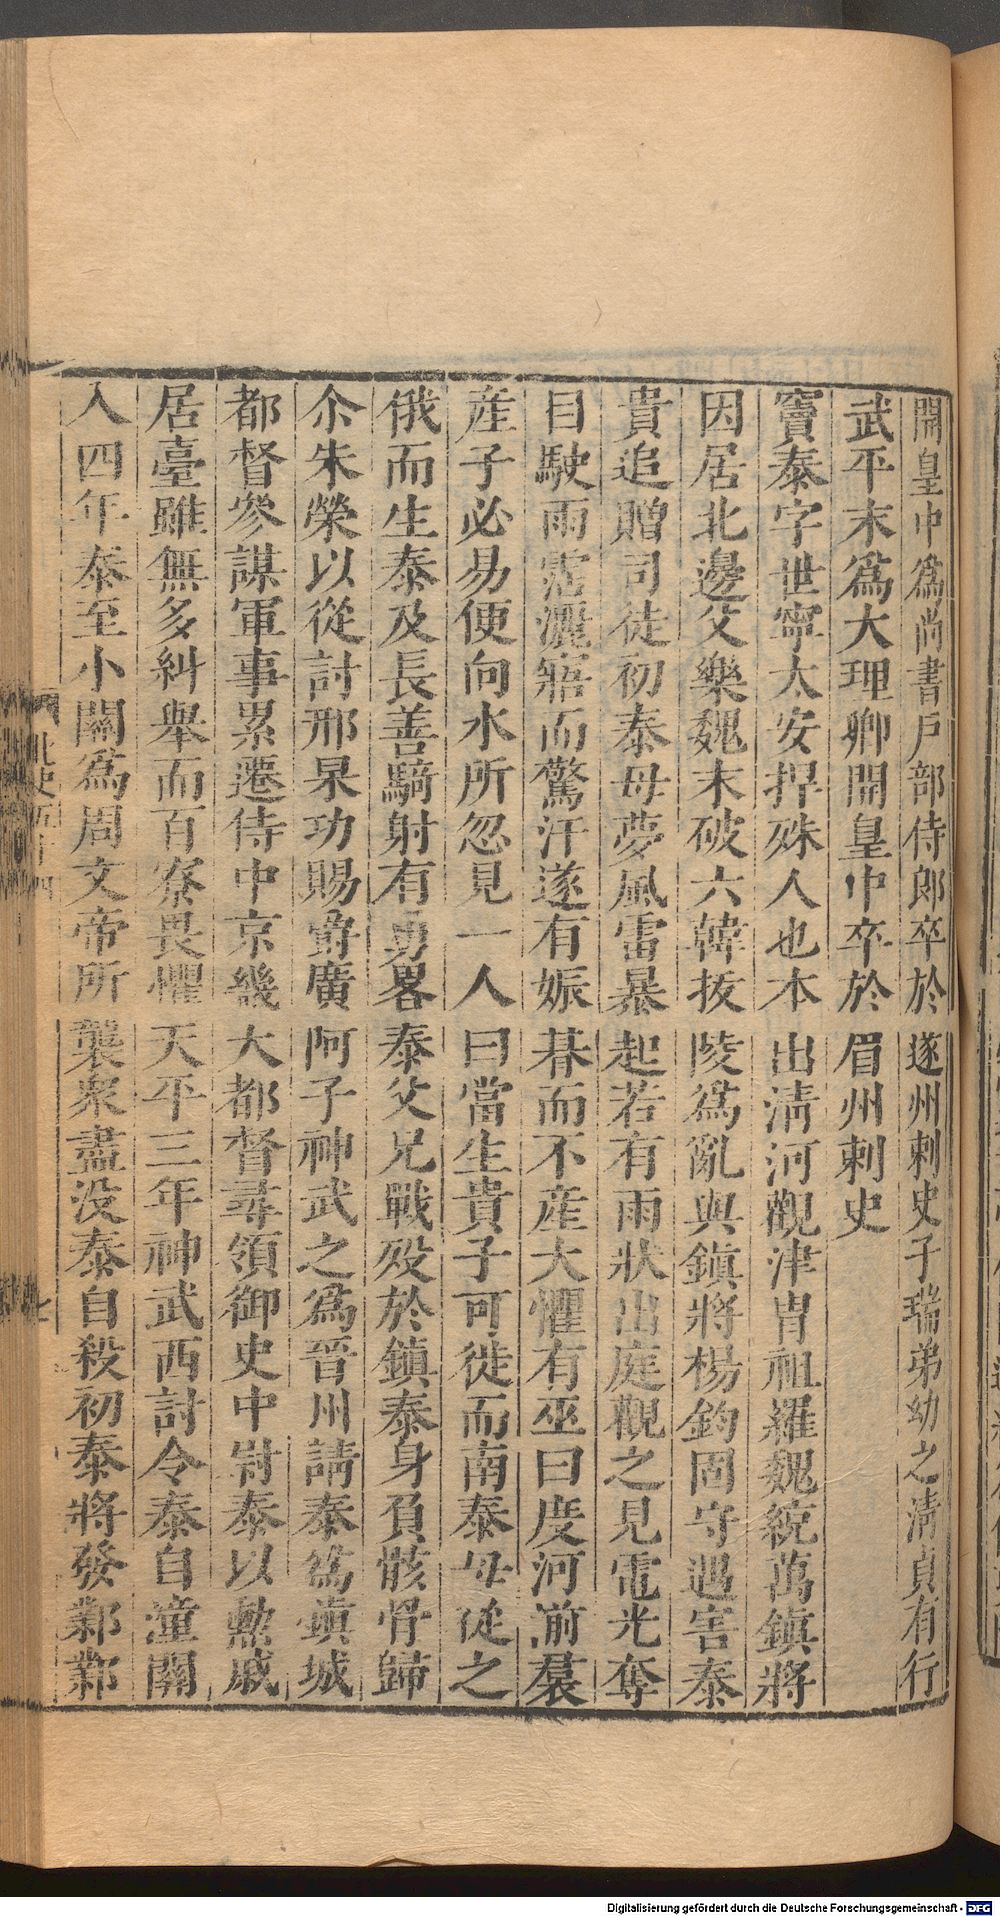 開皇中爲尚書戶部侍郎卒於遂州刺史子瑞弟幼之淸貞有行
武平末爲大理卿開皇中卒於眉州刺史
竇泰字世寧太安捍殊人也本出淸河觀津胄祖羅魏統萬鎮將
因居北邊父樂魏末破六韓拔陵爲亂與鎮將楊鈞固守遇害泰
貴追贈司徒初泰母夢風雷暴起若有雨狀出庭觀之見電光奪
目駛雨霑灑寤而驚汗遂有娠朞而不産大懼有巫曰度河湔裠
産子必易便向水所忽見一人曰當生貴子可徙而南泰母從之
俄而生泰及長善騎射有勇畧泰父兄戰歿於鎮泰身負骸骨歸
尒朱榮以從討邢杲功賜爵廣阿子神武之爲晉州請泰爲鎮城
都督參謀軍事累遷侍中京畿大都督尋領御史中尉泰以勲戚
居臺雖無多糾舉而百寮畏懼天平三年神武西討令泰自潼關
入四年泰至小關爲周文帝所襲衆盡没泰自殺初泰將發鄴鄴
北史五十四
七
Digitalisierung gefördert durch die Deutsche Forschungsgemeinschaft - DFG